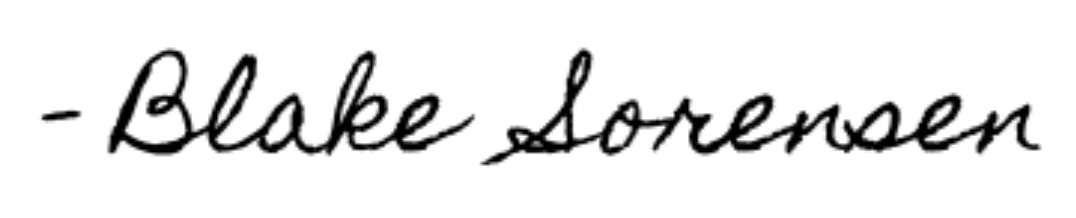 - Blake Sorensen